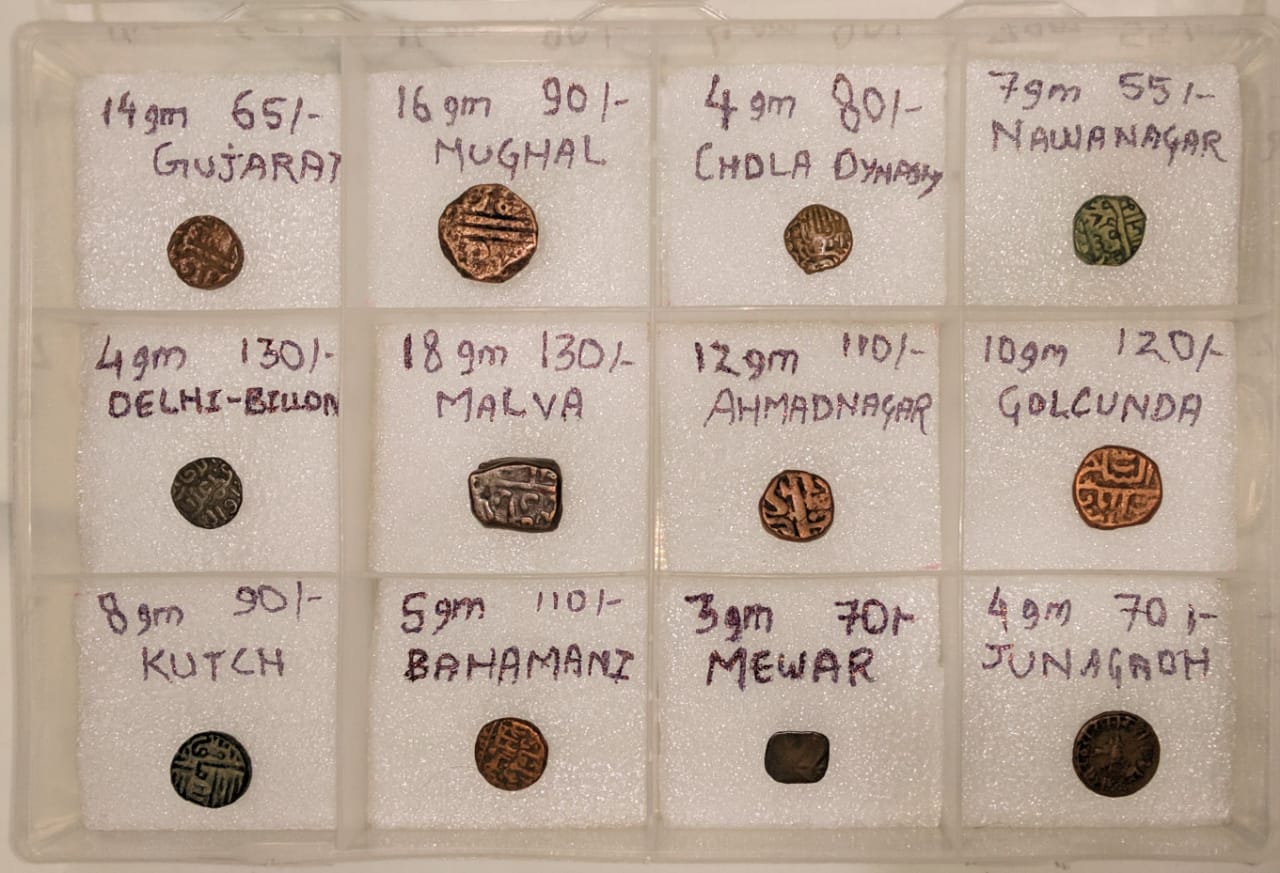 14gm 65/-
GUJARAT
16gm 90/-
MUGHAL
4gm 80/-
CHOLA DYNASTY
7gm 55/-
NAWANAGAR
4gm 130/-
DELHI-BILLON
18gm 130/-
MALVA
12gm 110/-
AHMADNAGAR
10gm 120/-
GOLCUNDA
8gm 90/-
KUTCH
5gm 110/-
BAHAMANI
3gm 70/-
MEWAR
4gm 70/-
JUNAGADH